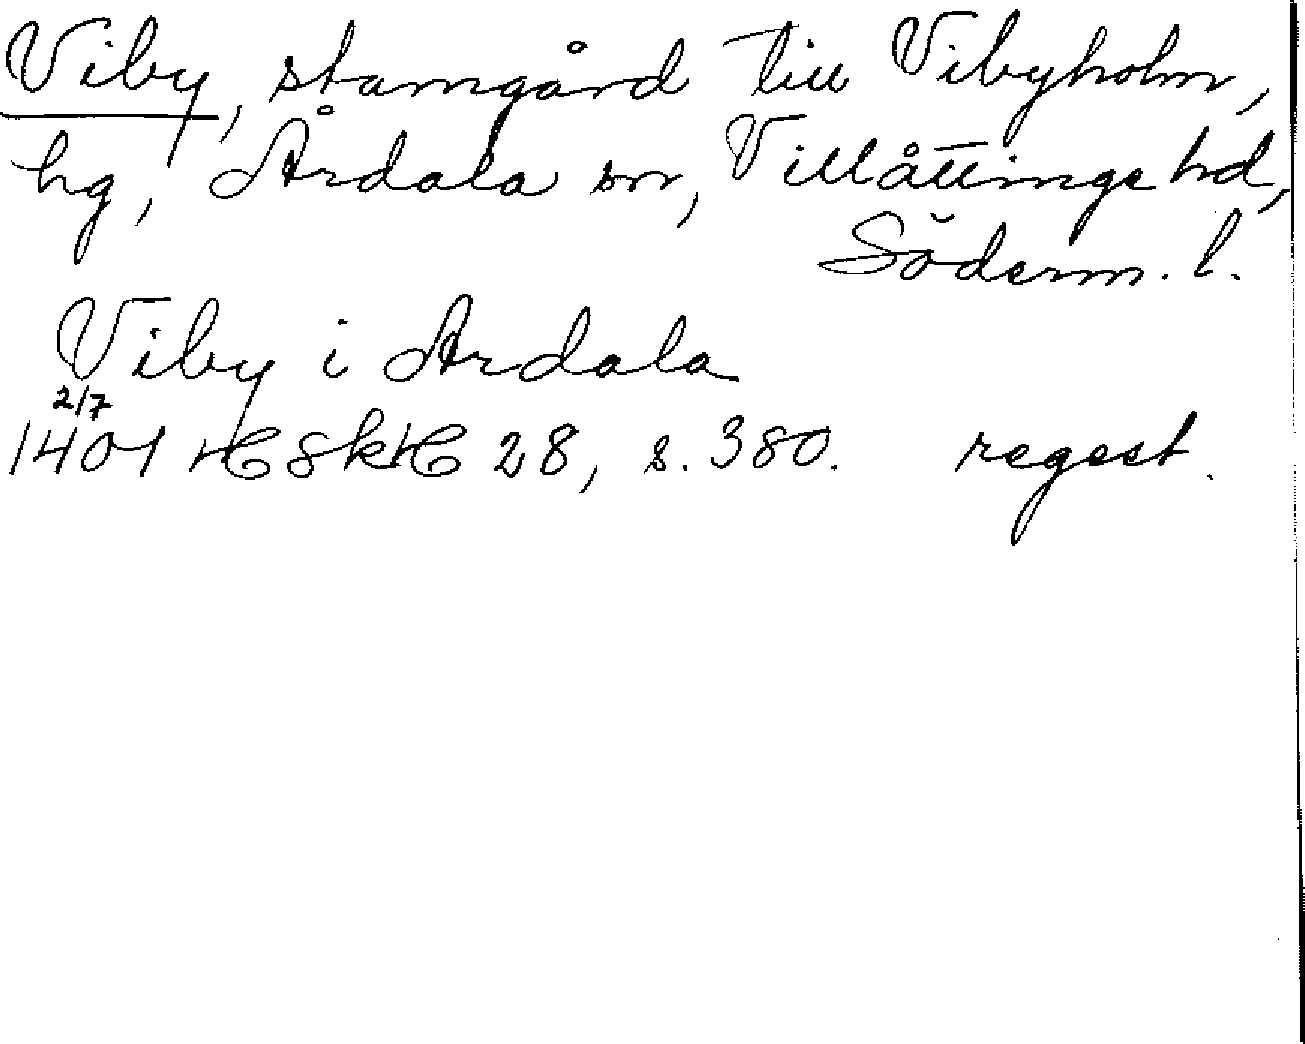 Viby, stamgård till Vibyholm,
hg, Årdala sn, Villåttinge hd,
Söderm. l.
Viby i Ardala
2/7
1401 HSkH 28, s. 380. regest.